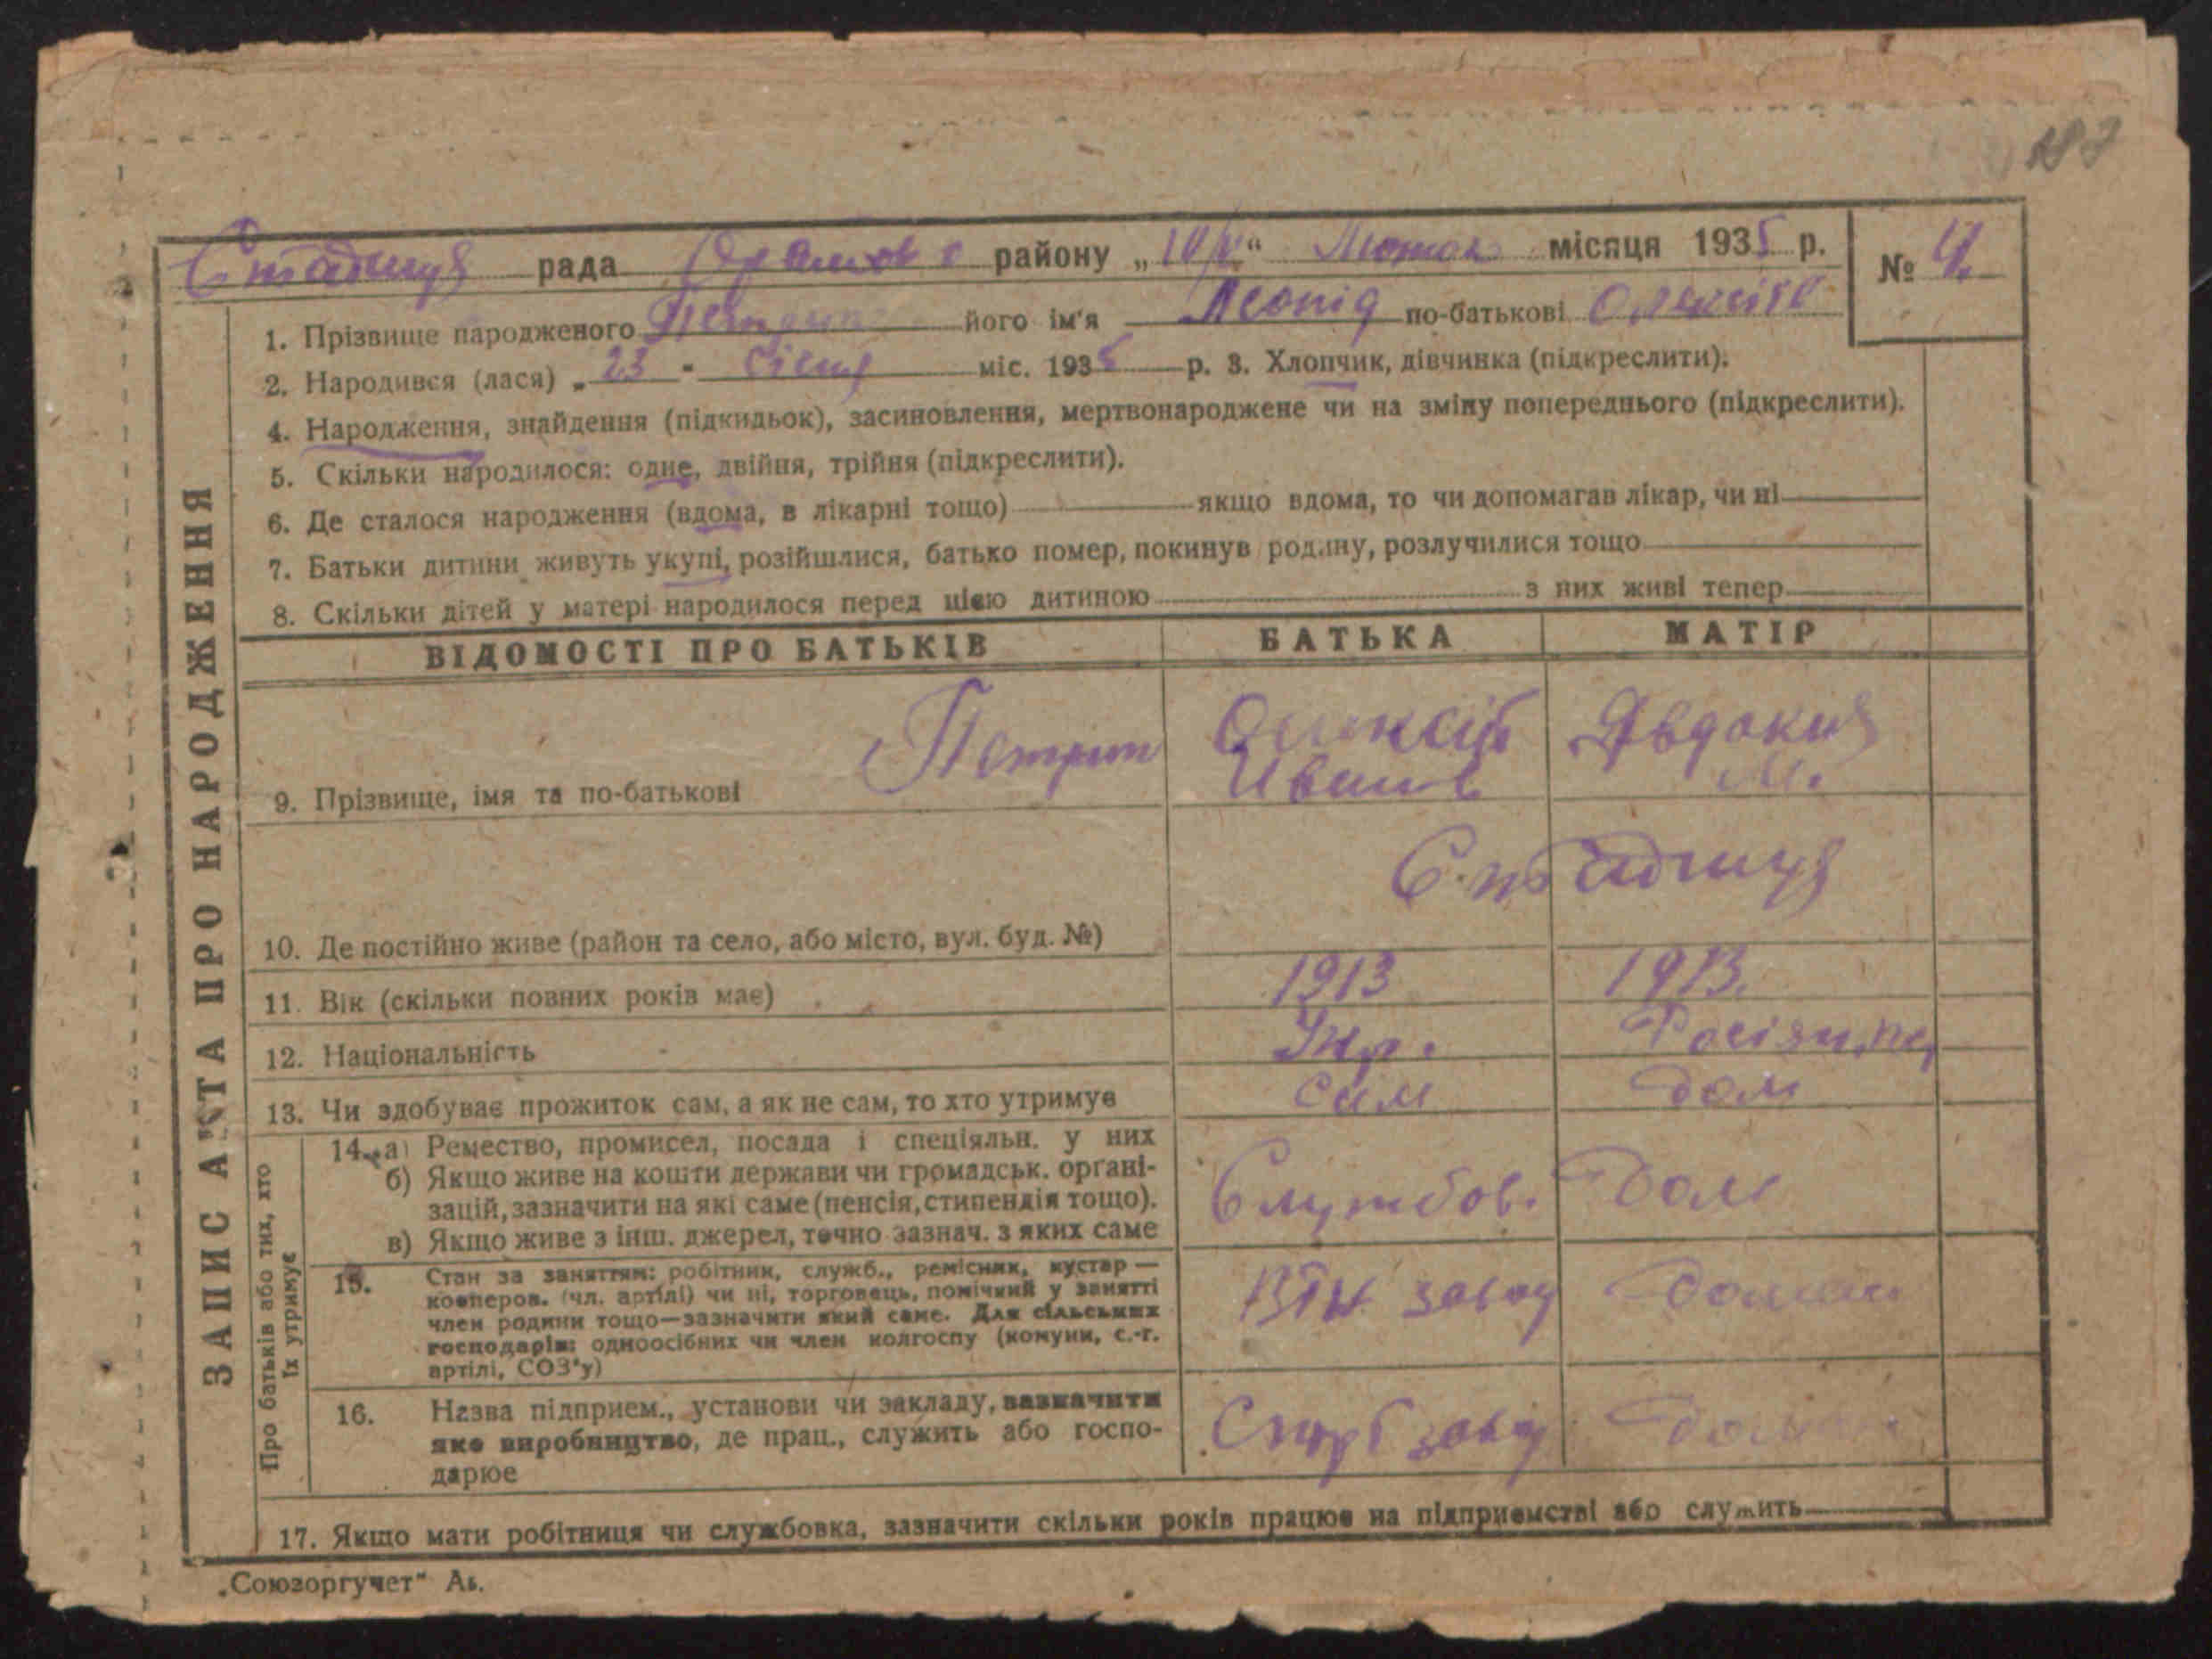 187
рада району „10/II“ Лютого місяця 1935 р. № 4.
1. Прізвище народженого Петрит його ім'я Леонід по-батькові Олексійо
2. Народився (лася) „23 - Січня міс. 1935 р. 3. Хлопчик, дівчинка (підкреслити).
4. Народження, знайдення (підкидьок), засиновлення, мертвонароджене чи на зміну попереднього (підкреслити).
5. Скільки народилося: одне, двійня, трійня (підкреслити).
6. Де сталося народження (вдома, в лікарні тощо) якщо вдома, то чи допомагав лікар, чи ні
7. Батьки дитини живуть укупі, розійшлися, батько помер, покинув родину, розлучилися тощо
8. Скільки дітей у матері народилося перед цією дитиною з них живі тепер
ЗАПИС АКТА ПРО НАРОДЖЕННЯ
ВІДОМОСТІ ПРО БАТЬКІВ БАТЬКА МАТІР
Петрит Олексій Явдокия
9. Прізвище, імя та по-батькові Иванов М.
10. Де постійно живе (район та село, або місто, вул. буд. №)
11. Вік (скільки повних років має) 1913 1913.
12. Національність Укр. Росіянка
13. Чи здобуває прожиток сам, а як не сам, то хто утримує сам дом
Про батьків або тих, хто
їх утримує
14. а) Ремество, промисел, посада і спеціяльн. у них
б) Якщо живе на кошти держави чи громадськ. органі-
зацій, зазначити на які саме (пенсія, стипендія тощо). Службов. дом
в) Якщо живе з інш. джерел, точно зазнач. з яких саме
15. Стан за заняттям: робітник, служб., ремісник, кустар —
кооперов. (чл. артілі) чи ні, торговець, помічний у занятті
член родини тощо—зазначити який саме. Для сільських завод
господарів: одноосібних чи член колгоспу (комуни, с.-г.
артілі, СОЗ'у)
16. Назва підприєм., установи чи закладу, зазначити
яке виробництво, де прац., служить або госпо-
дарює
17. Якщо мати робітниця чи службовка, зазначити скільки років працює на підприємстві або служить
„Союзоргучет“ Аь.